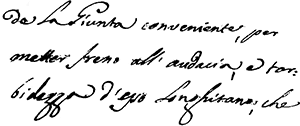 de la Giunta conveniente, per
metter freno all' audacia, e tor-
bidezza d'esso Longhitano; che